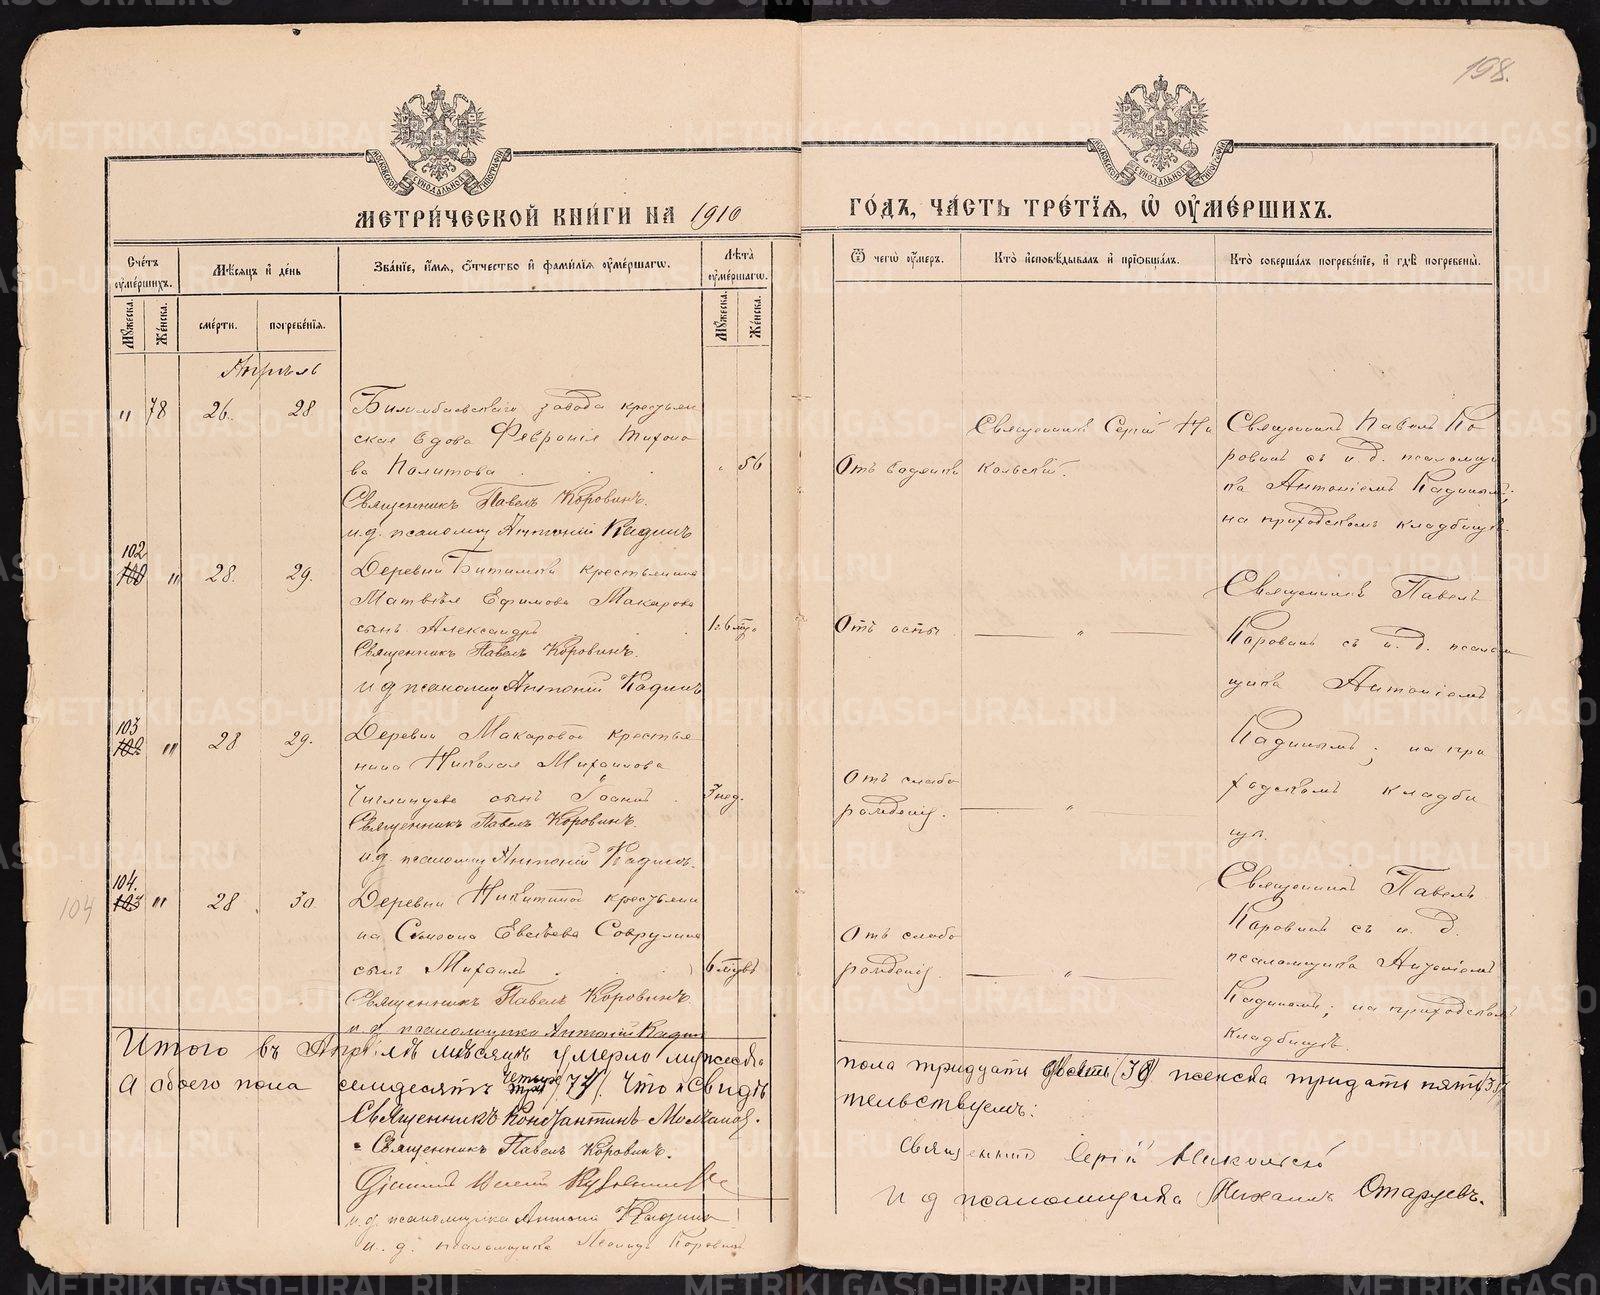 198.
МЕТРИЧЕСКОЙ КНИГИ НА 1910
ГОДЪ, ЧАСТЬ ТРЕТІЯ, Ѡ ОУМЕРШИХЪ.
Счетъ оумершихъ.
Мѣсяцъ и день
Званіе, имя, отчество и фамилія оумершагѡ.
Лѣта оумершагѡ.
Ѿ чегѡ оумеръ.
Кто исповѣдывалъ и пріобщалъ.
Кто совершалъ погребеніе, и гдѣ погребены.
Мужеска.
Женска.
смерти.
погребенія.
Мужеска.
Женска.
Апрѣль
" 78 26. 28
Билимбаевскаго завода крестьян
ская вдова Февронія Тихоно
ва Политова
56
Священникъ Павелъ Коровинъ.
и.д. псаломщ Антоній Кадинъ
Отъ водянки
Священникъ Сергій Ни
кольскій.
Священникъ Павелъ Ко
ровинъ съ и. д. псаломщи
ка Антоніемъ Кадинымъ;
на приходскомъ кладбищѣ.
102 " 28. 29.
Деревни Битимки крестьянина
Матвѣя Ефимова Макарова
сынъ Александръ
Священникъ Павелъ Коровинъ.
и д псаломщ Антоній Кадинъ
Отъ оспы
Священникъ Павелъ
Коровинъ съ и. д. псалом
щика Антоніемъ
Кадинымъ; на при
ходскомъ кладби
щѣ.
103 " 28 29.
Деревни Макаровой крестья
нина Николая Михаилова
сынъ Іоаннъ
3 нед.
Священникъ Павелъ Коровинъ.
и.д. псаломщ Антоній Кадинъ.
Отъ слабо
рожденія.
104
104. 103 " 28 30
Деревни Никитиной крестьяни
на Симона Евсѣева Соврулина
сынъ Михаилъ
6 мцвъ
Священникъ Павелъ Коровинъ.
и. д. псаломщика Антоній Кадин
Отъ слабо
рожденія.
Священникъ Павелъ
Коровинъ съ и. д.
псаломщика Антоніемъ
Кадинымъ; на приходскомъ
кладбищѣ.
Итого въ Апрѣлѣ мѣсяцѣ умерло мужеска
пола тридцать женска тридцать пять
а обоего пола семьдесятъ четыре три /74/. Что и свидѣ
тельствуемъ:
Священникъ Константинъ
Священникъ Павелъ Коровинъ.
и. д. псаломщика Антоній Кадинъ
и. д. псаломщика Леонидъ Коровинъ
священникъ Сергій Никольскій
и д псаломщика Михаилъ Старцевъ.
METRIKI.GASO-URAL.RU